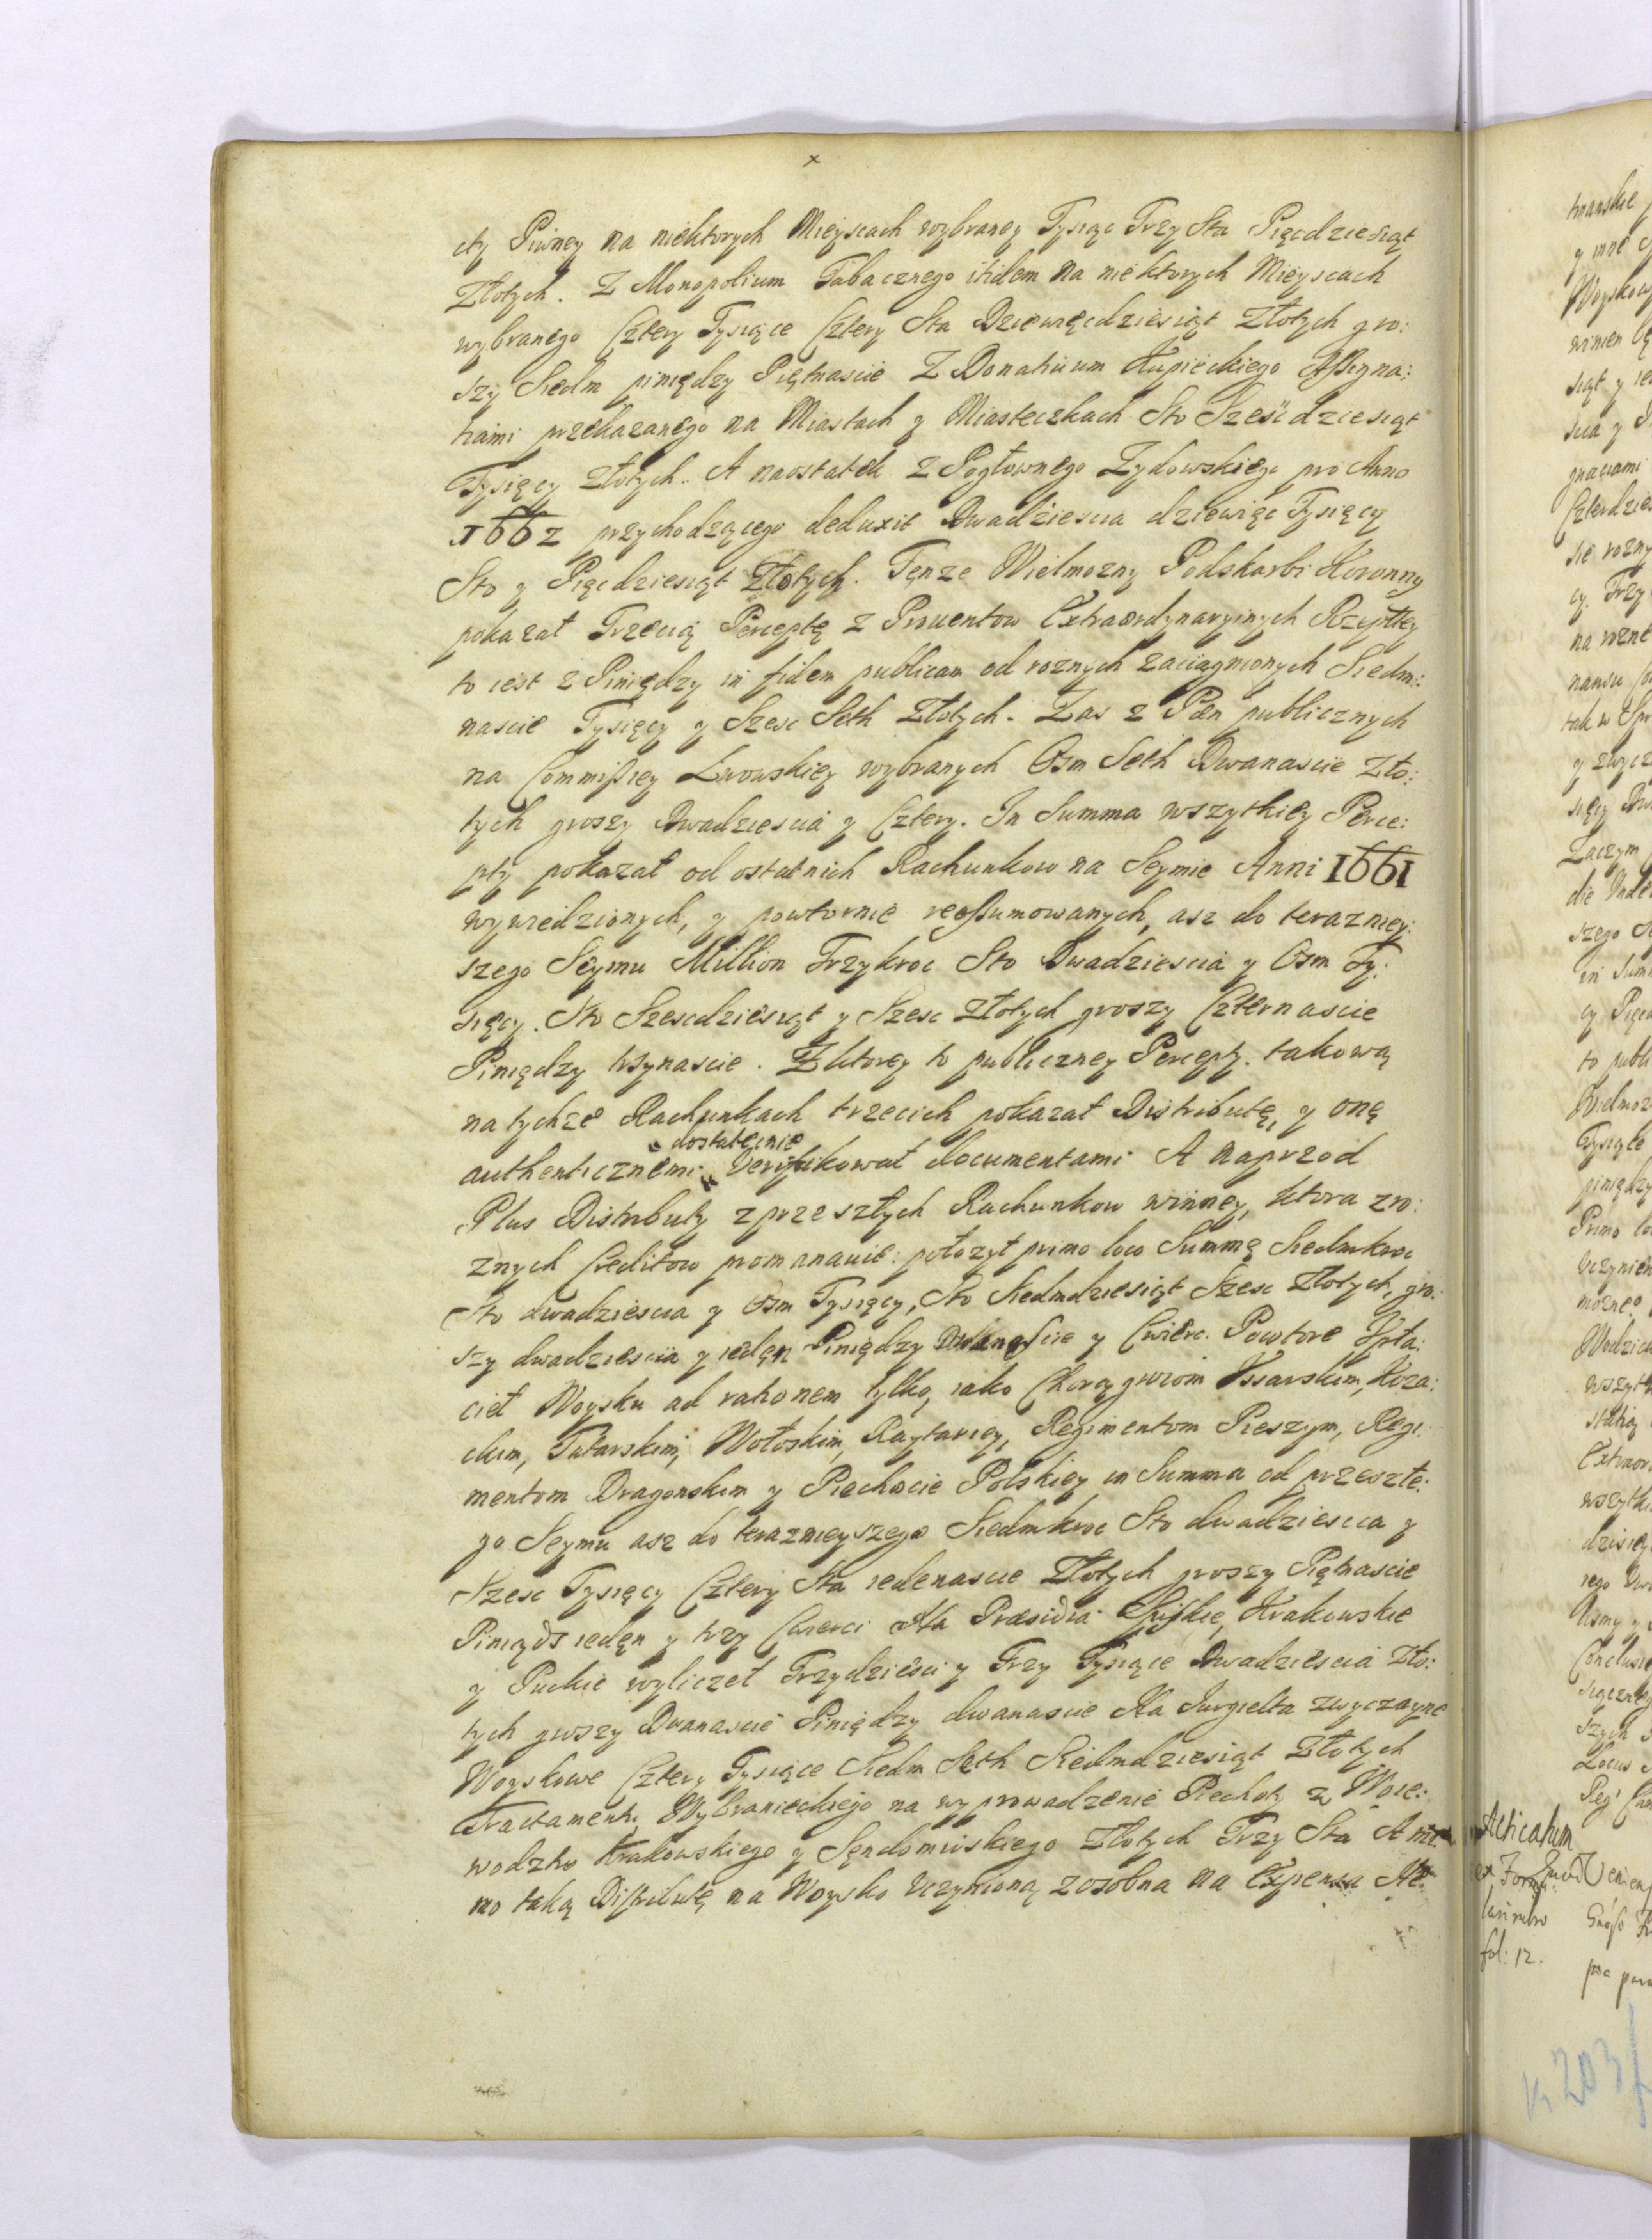 cty Piwney na niektorych Mieyscach wybraney Tysiąc Trzy Sta Pięcdziesiąt
Złotych. Z Monopolium Tabacznego itidem na niektorych Mieyscach
wybranego Cztery Tysiące Cztery Sta Dziewięcdziesiąt Złotych gro:
szy Siedm piniędzy Piętnascie Z Donatiuum Kupieckiego Assigna:
tiami przekazanego na Miastach y Miasteczkach Sto Szescdziesiąt
Tysięcy złotych. A naostatek z Pogłownego Zydowskiego pro Anno
1662 przychodzącego deduxit Dwadziescia dziewięc Tysięcy
Sto y Pięcdziesiąt Złotych. Tenze Wielmozny Podskarbi Koronny
pokazał Trzecią Perceptę z Prouentow Extraordynaryinych Rzpltey
to iest z Piniędzy in fidem publicam od roznych zaciągnionych Siedm:
nascie Tysięcy y Szesc Seth Złotych. Zas z Pæn publicznych
na Commissiey Lwowskiey wybranych Osm Seth Dwanascie Zło:
tych groszy Dwadziescia y Cztery. In Summa wszytkiey Perce:
pty pokazał od ostatnich Rachunkow na Seymie Anni 1661
wywiedzionych, y powtornie reassumowanych, asz do terazniey:
szego Seymu Million Trzykroc Sto Dwadziescia y Osm Ty:
sięcy. Sto Szescdziesiąt y Szesc złotych groszy Czternascie
Piniędzy trzynascie. Z ktorey to publiczney Percepty. takową
na tychze Rachunkach trzecich pokazał Distributę, y onę
dostatecznie
authenticznemi Verifikował documentami A naprzod
Plus Distributy z przeszłych Rachunkow winney, ktora z ro:
znych Creditow promanauit: położył primo loco Summę Siedmkroc
Sto dwadziescia y Osm Tysięcy, Sto Siedmdziesiąt Szesc Złotych, gro:
szy dwadziescia y ieden Piniędzy Dwanascie y Cwierc. Powtore Vpła:
cił Woysku ad rationem tylko, iako Chorągwiom Vssarskim, Koza:
ckim, Tatarskim, Wołoskim, Raytariey, Regimentom Pieszym, Regi:
mentom Dragonskim y Piechocie Polskiey in Summa od przeszłe:
go Seymu asz do terazneyszego Siedmkroc Sto dwadziescia y
Szesc Tysięcy Cztery Sta iedenascie Złotych groszy Piętnascie
Piniądz ieden y trzy Cwierci Na Præsidia Spiskie, Krakowskie
y Puckie wyliczeł Trzydziesci y Trzy Tysiące Dwadziescia Zło:
tych groszy Dwanascie Piniędzy dwanascie Na Jurgielta zwyczayne
Woyskowe Cztery Tysiące Siedm Seth Siedmdziesiąt Złotych
Tractamentu Wybranieckiego na wyprowadzenie Piechoty z Woie:
wodztwa Krakowskiego y Sendomirskiego Złotych Trzy Sta A
mo taką Distributę na Woysko Vczynioną zosobna na Expensa
Acticatum
fol: 12.